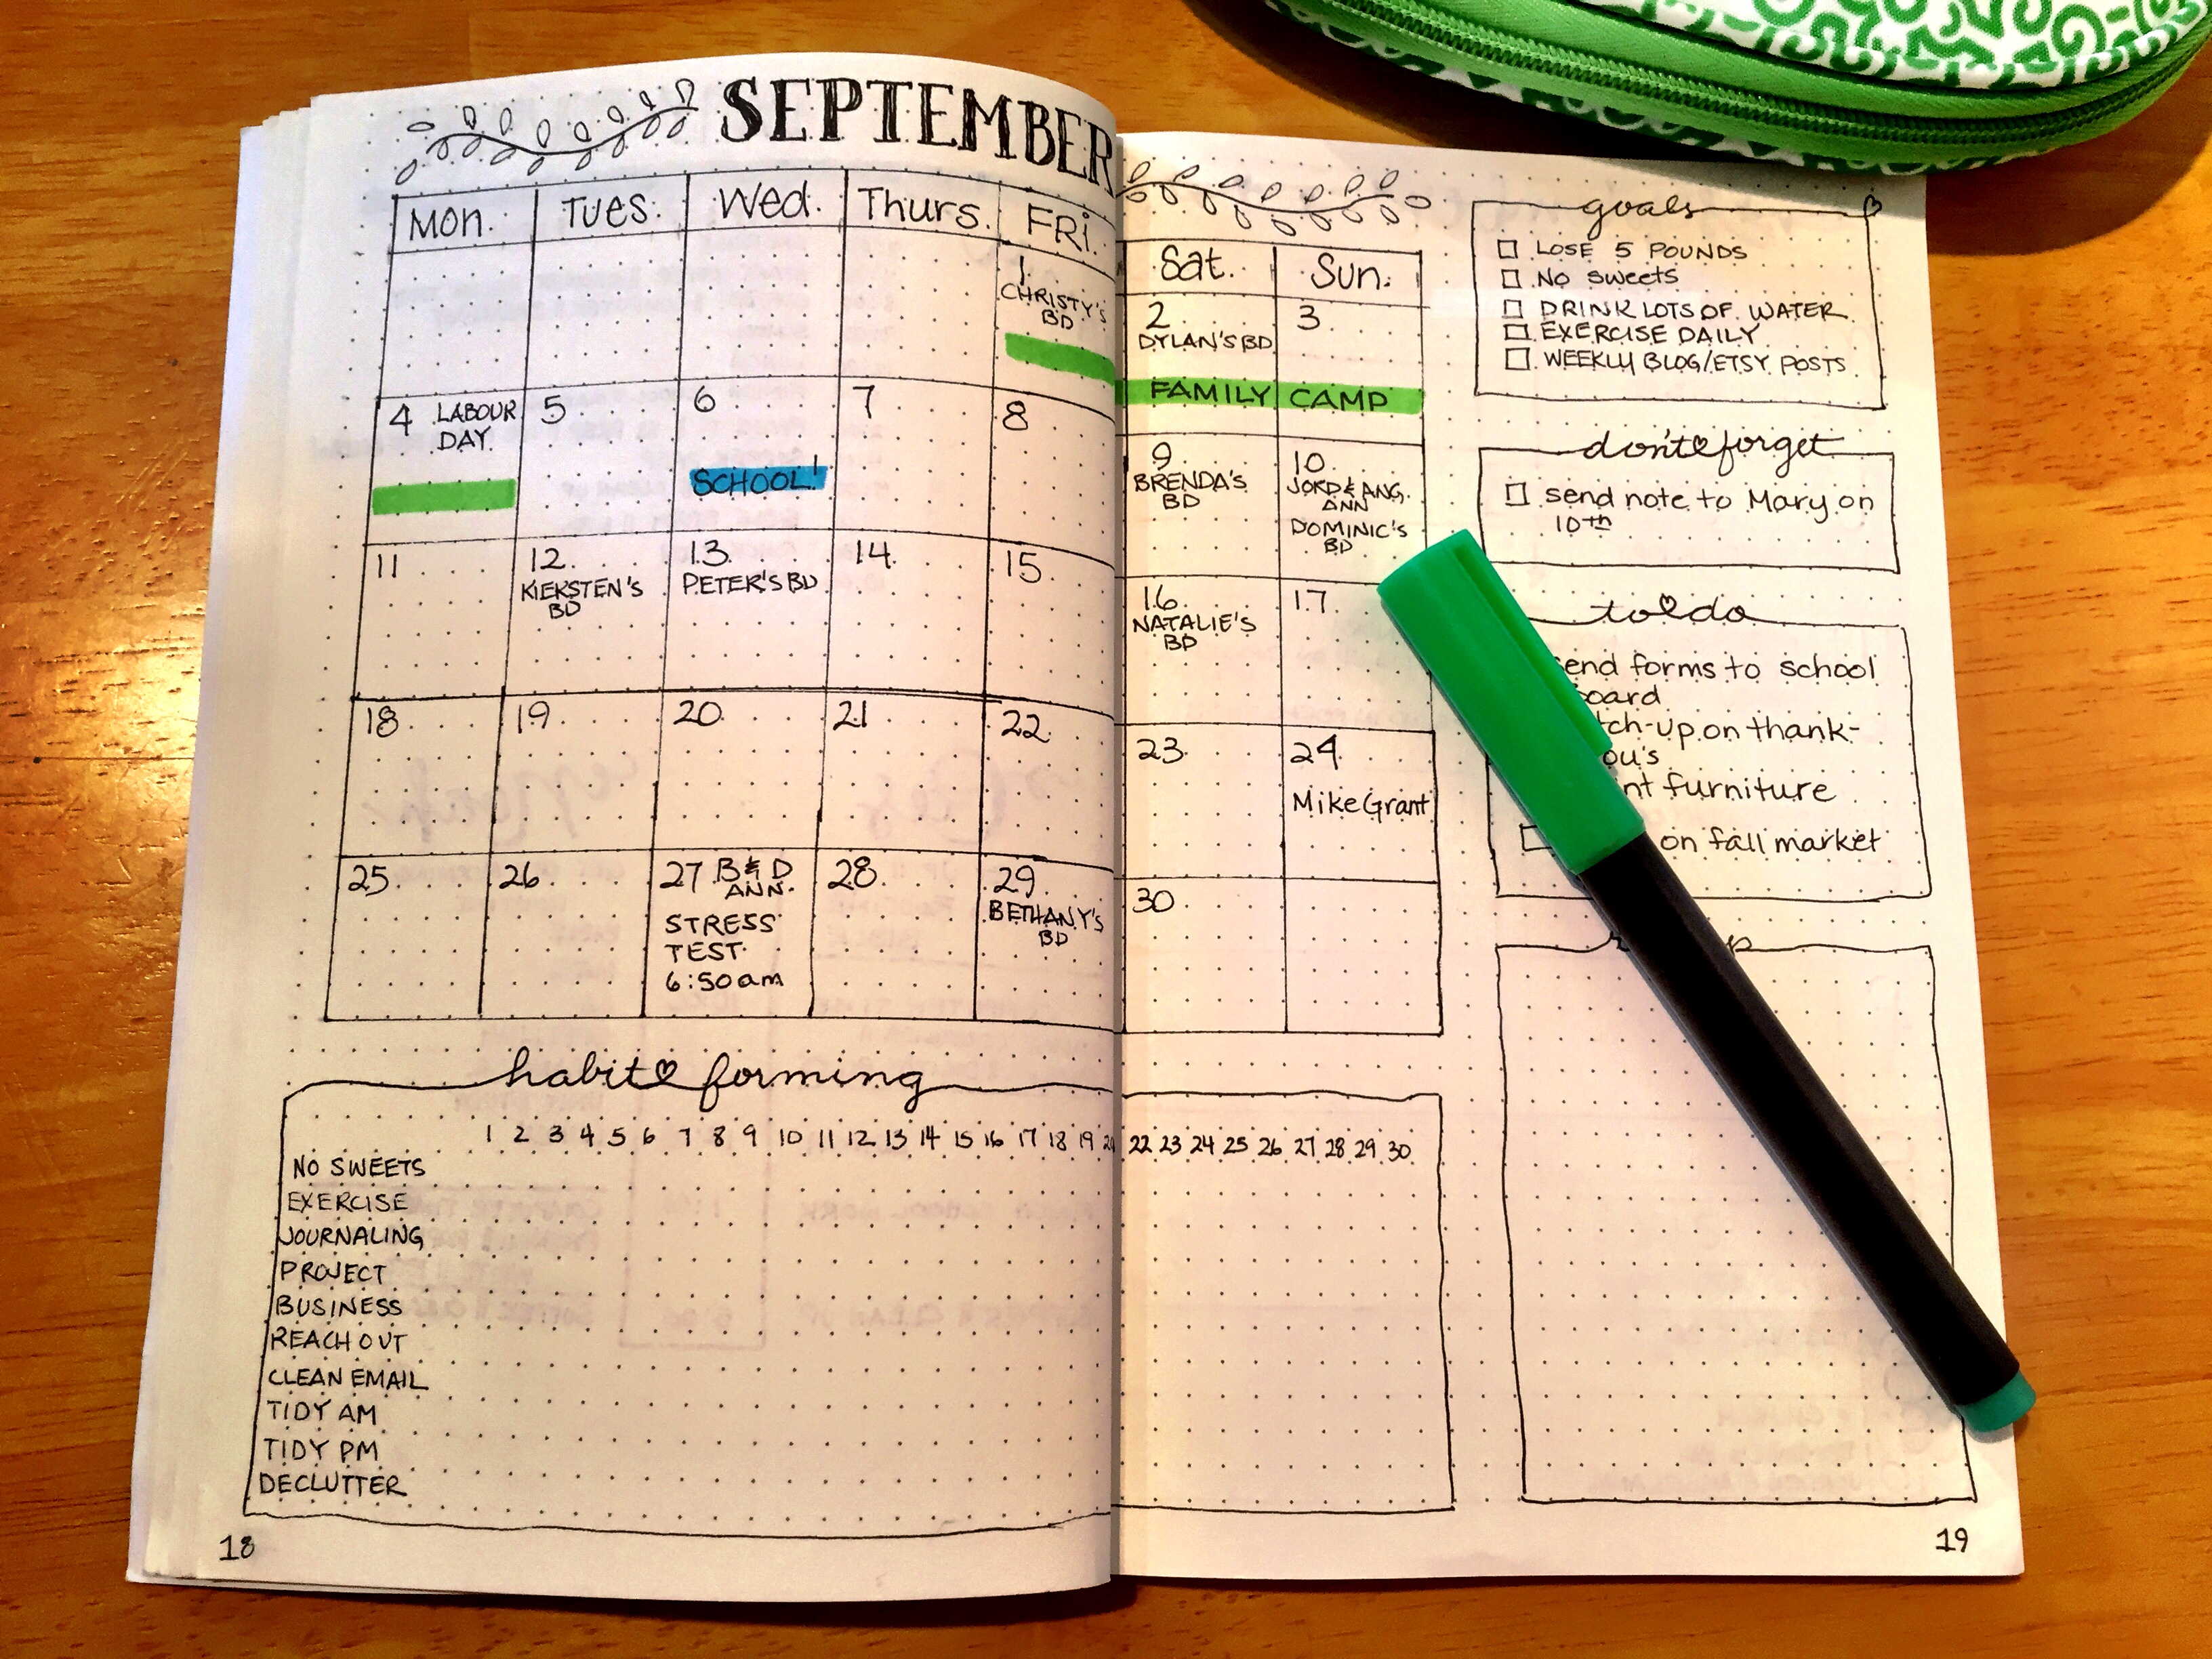 SEPTEMBER
Mon. Tues. Wed. Thurs. FRi. Sat. Sun.
1
CHRISTY'S
BD
2
DYLAN'S BD
3
FAMILY CAMP
4 LABOUR
DAY
5
6
SCHOOL!
7
8
9
BRENDA'S
BD
10
JORD & ANG.
ANN
DOMINIC'S
BD
11
12
KIEKSTEN'S
BD
13
PETER'S BD
14
15
16
NATALIE'S
BD
17
18
19
20
21
22
23
24
Mike Grant
25
26
27 B & D
ANN.
STRESS
TEST
6:50am
28
29
BETHANY'S
BD
30
goals
LOSE 5 POUNDS
No sweets
DRINK LOTS OF WATER
EXERCISE DAILY
WEEKLY BLOG/ETSY POSTS
don't forget
send note to Mary on
10th
to do
forms to school
on thank-
furniture
on fall market
habit forming
1 2 3 4 5 6 7 8 9 10 11 12 13 14 15 16 17 18 19 22 23 24 25 26 27 28 29 30
NO SWEETS
EXERCISE
JOURNALING
PROJECT
BUSINESS
REACH OUT
CLEAN EMAIL
TIDY AM
TIDY PM
DECLUTTER
18
19